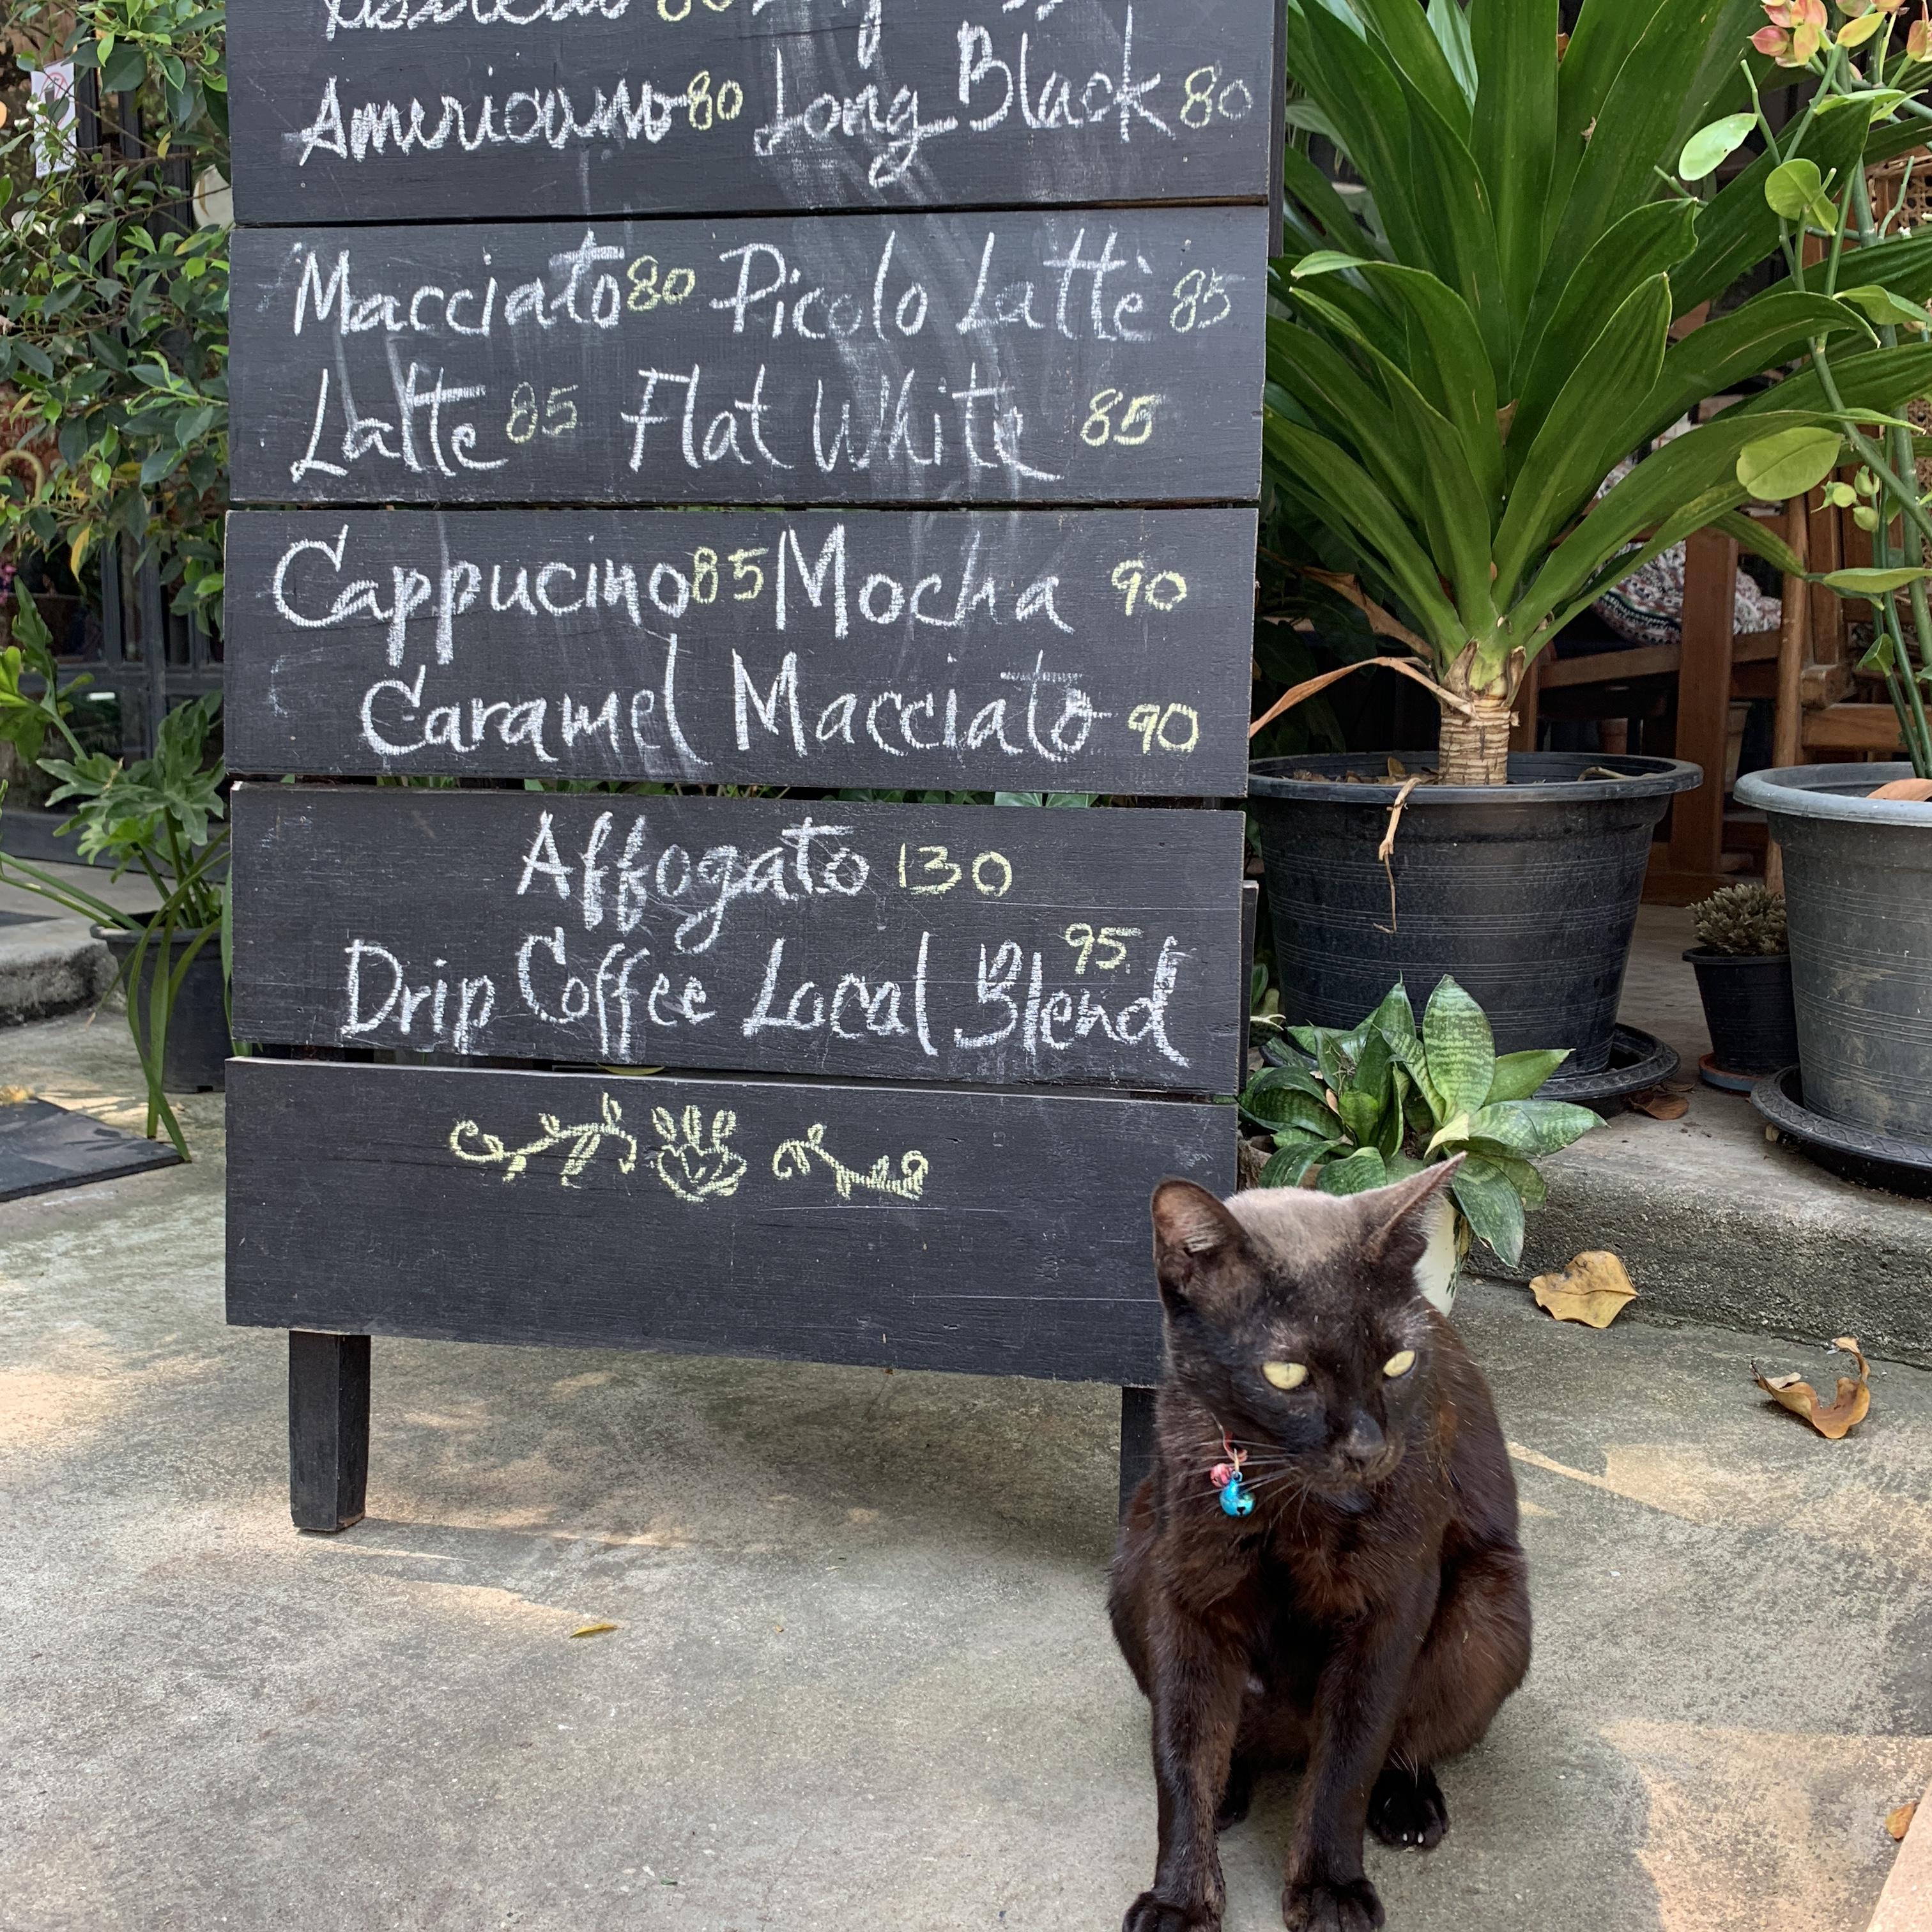 Americano 80 Long Black 80
Macciato 80 Picolo Lattè 85
Latte 85 Flat White 85
Cappucino 85 Mocha 90
Caramel Macciato 90
Affogato 130
Drip Coffee Local Blend 95